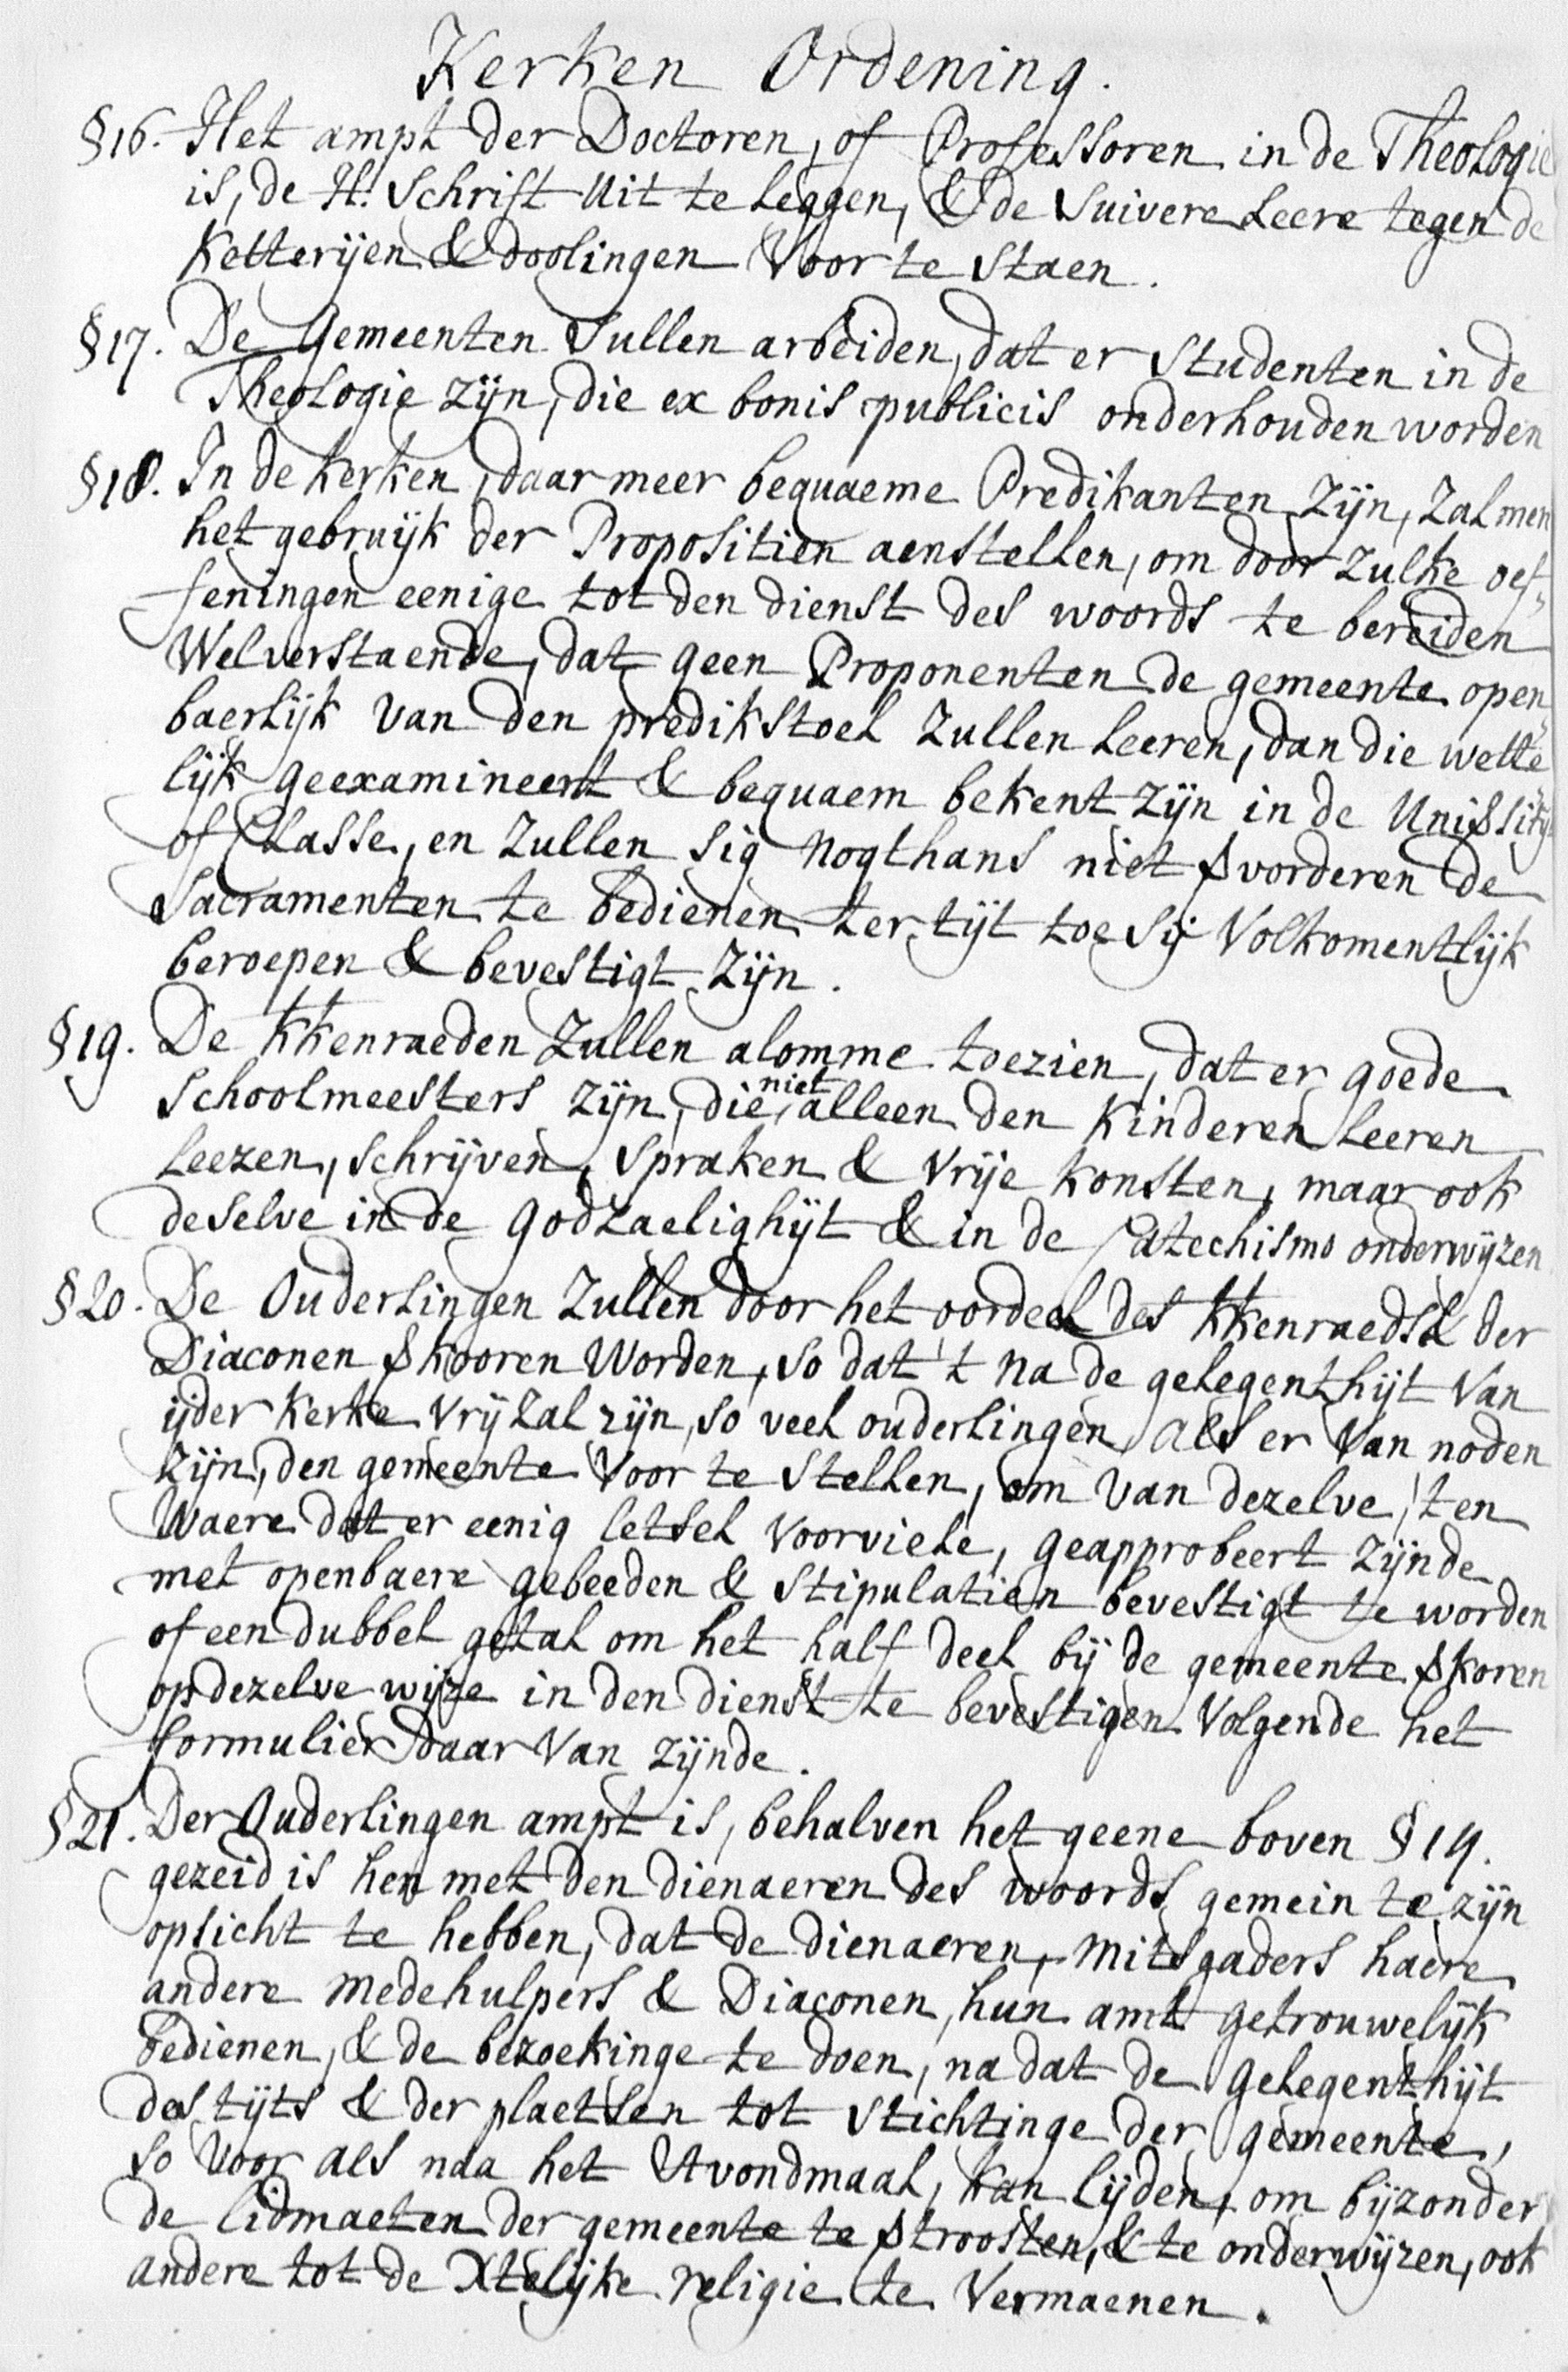 Kerken Ordening.
§16. Het ampt der Doctoren, of Professoren in de Theologie
is, de H. Schrift uit te leggen, & de suivere leere tegen de
Ketterijen & doolingen voor te staen.
§17. De Gemeenten sullen arbeiden, dat er studenten in de
Theologie zijn, die ex bonis publicis onderhouden worden
§18. In de kerken, daar meer bequaeme Predikanten zijn, zal men
het gebruijk der Propositien aenstellen, om door zulke oef„
feningen eenige tot den dienst des woords te bereiden
Welverstaende, dat geen Proponenten de gemeente open„
baerlijk van den predikstoel zullen leeren, dan die wette„
lijk geexamineert & bequaem bekent zijn in de
of Classe, en zullen sig nogthans niet vorderen de
Sacramenten te bedienen ter tijt toe sij volkomentlijk
beroepen & bevestigt zijn.
§19. De kkenraeden zullen alomme toezien, dat er goede
Schoolmeesters zijn, die niet alleen den kinderen leeren
leezen, schrijven, spraken & vrije konsten, maar ook
deselve in de godzaelighijt & in de Catechismo onderwijzen
§20. De Ouderlingen zullen door het oordeel des kkenraeds & der
Diaconen kooren worden, so dat 't na de gelegenthijt van
ijder kerke vrij zal zijn, so veel ouderlingen als er van noden
zijn, den gemeente voor te stellen, om van dezelve, 't en
waere dat er eenig letsel voorviele, geapprobeert zijnde
met openbaere gebeeden & stipulatien bevestigt te worden
of een dubbel getal om het half deel bij de gemeente koren
op dezelve wijze in den dienst te bevestigen volgende het
formulier daar van zijnde.
§21. Der Ouderlingen ampt is, behalven het geene boven § 19.
gezeid is hen met den dienaeren des woords gemein te zijn
opsicht te hebben, dat de dienaeren, mitsgaders haere
andere medehulpers & Diaconen, hun amt getrouwelijk
bedienen, & de bezoekinge te doen, na dat de gelegenthijt
des tijts & der plaetsen tot stichtinge der gemeente,
so voor als naa het Avondmaal, kan lijden, om bijzonder
de lidmaeten der gemeente te troosten, & te onderwijzen, ook
andere tot de Xtelijke religie te vermaenen.